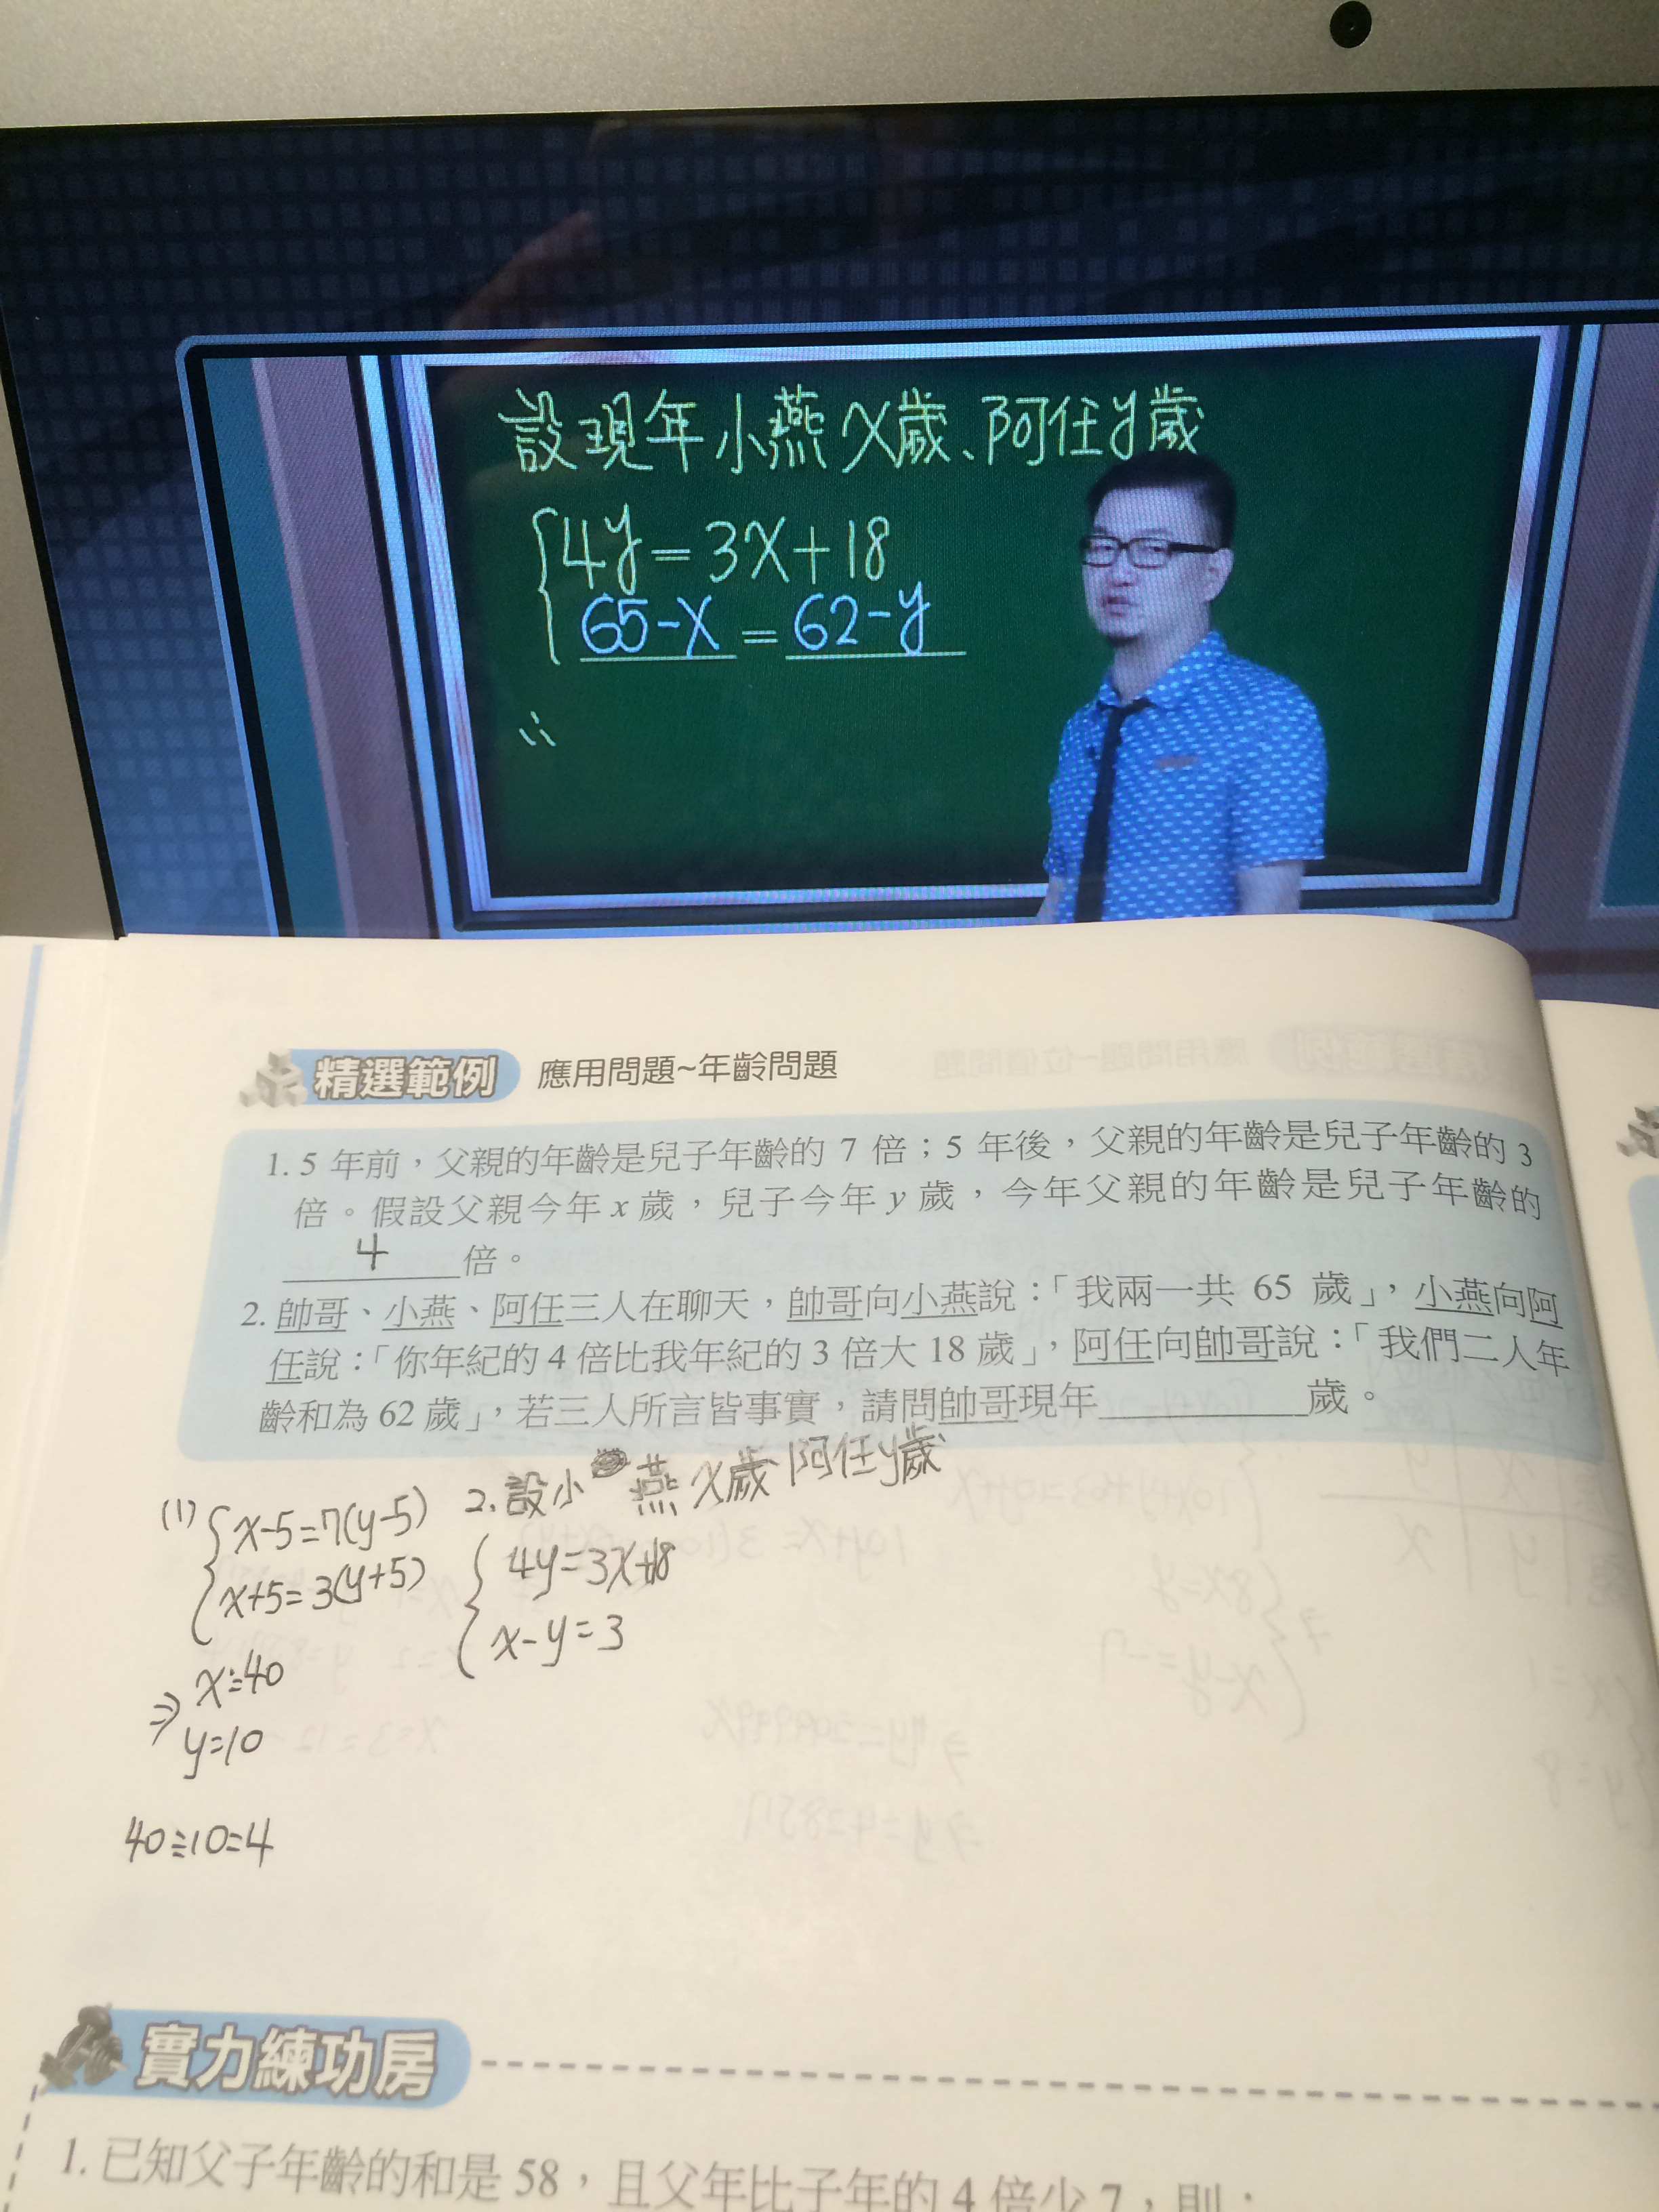 設現年小燕x歲、阿任y歲
4y=3x+18
65-x=62-y
∴
精選範例 應用問題~年齡問題
1. 5 年前，父親的年齡是兒子年齡的 7 倍；5 年後，父親的年齡是兒子年齡的 3
倍。假設父親今年 x 歲，兒子今年 y 歲，今年父親的年齡是兒子年齡的
4 倍。
2. 帥哥、小燕、阿任三人在聊天，帥哥向小燕說：「我兩一共 65 歲」，小燕向阿
任說：「你年紀的 4 倍比我年紀的 3 倍大 18 歲」，阿任向帥哥說：「我們二人年
齡和為 62 歲」，若三人所言皆事實，請問帥哥現年__________歲。
(1) x-5=7(y-5)
x+5=3(y+5)
⇒ x=40
y=10
40÷10=4
2. 設小燕x歲阿任y歲
4y=3x+18
x-y=3
實力練功房
1. 已知父子年齡的和是 58，且父年比子年的 4 倍少 7，則：